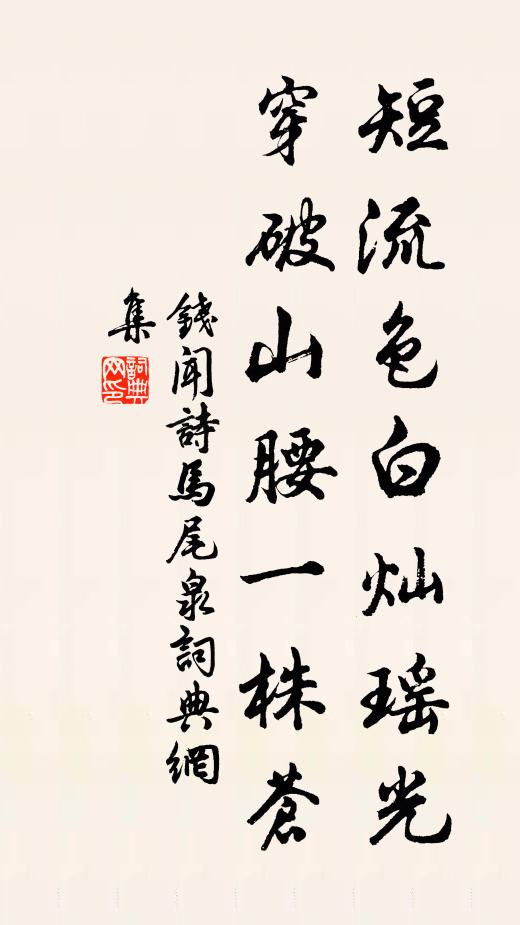 短流色白灿瑶光
穿破山腰一株蒼
錢聞詩馬尾泉詞典網
集
詞典
网印